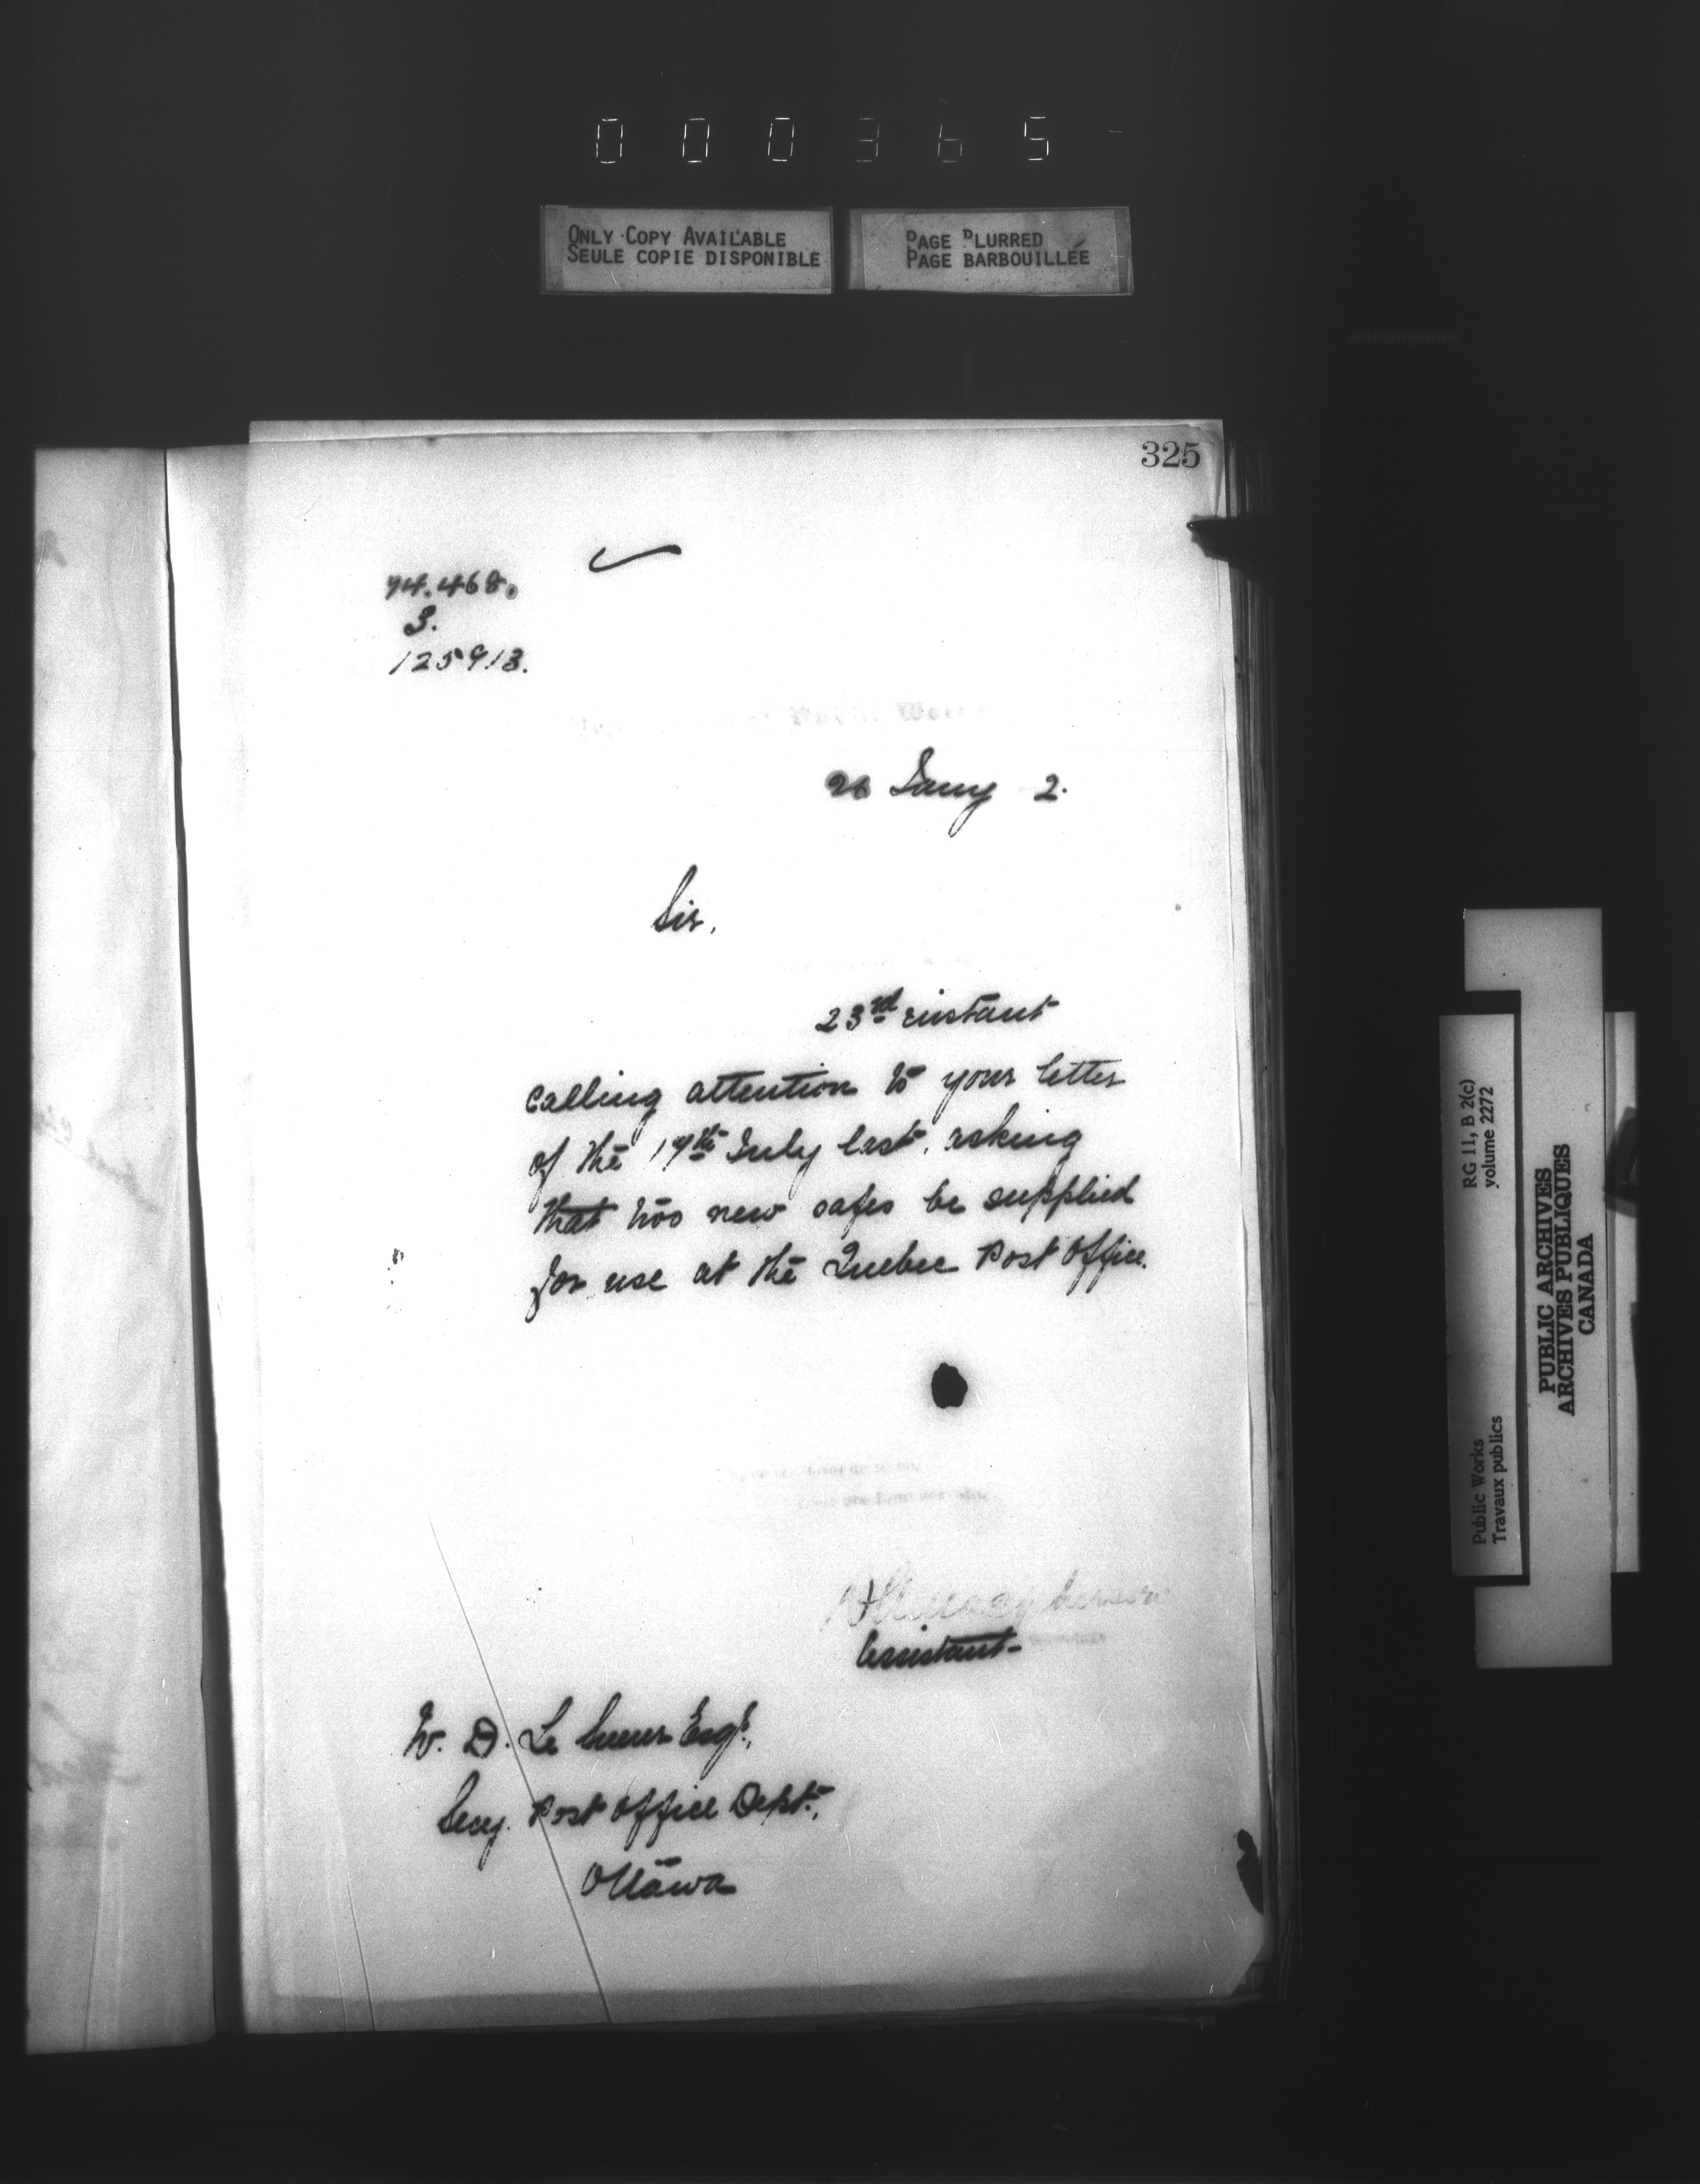 000365
ONLY COPY AVAILABLE
SEULE COPIE DISPONIBLE
PAGE BLURRED
PAGE BARBOUILLÉE
325
94.468.
3.
125913.
Public Wor
26 Jany 2.
Sir,
23rd instant
calling attention to your letter
of the 19th July last, asking
that two new safes be supplied
for use at the Quebec Post Office.
Assistant
W. D. Le Sueur Esqr.,
Secy. Post Office Dept.,
Ottawa
RG 11, B 2(c)
volume 2272
Public Works
Travaux publics
PUBLIC ARCHIVES
ARCHIVES PUBLIQUES
CANADA